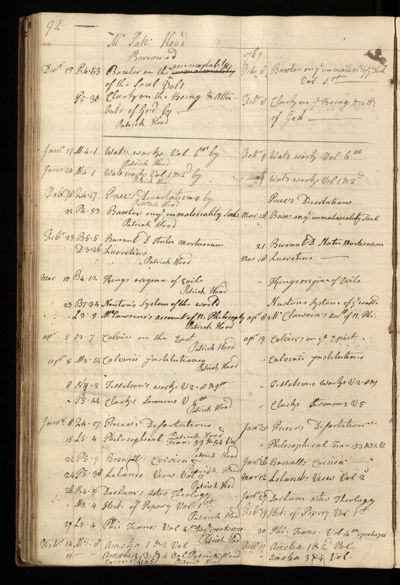 92
Mr Patk Hood
Borrowed
1769
Decr 15 R4:53 Baxter on the immateriality
of the Soul Vol 1
Febr 8 Baxter on ye immateriality of Soul
Vol 1st
P5:38 Clark on the Being & Attri
buts of God by
Patrick Hood
Febr 8 Clark on ye Being & Attr
of God
Janr 17 M4:1 Watts works Vol 6th by
Patrick Hood
Febr 9 Watts works Vol 6th
Janr 20 M4:1 Watts works Vol 1 & 2d by
Patrick Hood
Watts works Vol 1 & 2d
Price's Dissertations by
Patrick Hood
Price's Dissertations
22 P4:53 Baxter on ye immateriality Soul
Patrick Hood
Mar 10 Baxter on ye immateriality Soul
Febr 23 B5:5 Burnet D Statu Mortuorum
21 Burnet D Statu Mortuorum
D3:26 Lucretius
Patrick Hood
Mar 10 Lucretius
Mar 10 B4:12 Kings origine of Evile
Patrick Hood
Kings origine of Evile
23 Newton's System of the world
Newtons System of ye world
L3:9 McLaurin's account of N: Philosophy
Patrick Hood
apr 8 McClaurin's acct of N: Phi:
apr 5 O3:7 Calvin on the Epist
Patrick Hood
apr 19 Calvin on ye Epist.
apr 8 M3:14 Calvini institutiones
Patrick Hood
Calvini institutions
8 N4:2 Tillotson's works V2:
Tillotsons Works V2:
P5:44 Clarks Sermons V 5th
Patrick Hood
Clarks Sermons V5
Price's Dissertations
Janr 20 Price's Dissertations
15 L5:4 Philosophical Trans: 33 & 34 Vol
Patrick Hood
Philosophical Tran: 33 & 34 V
Patrick Hood
25 P5:38 Lelands View Vol 2d
Patrick Hood
Mar 12 Lelands View Vol 2d
26 B4:5 Derham's astro Theology
Derham astro Theology
M3:4 Hist. of Popery Vol 1st
Patrick Hood
Hist. of Popery Vol 1st
29 L5:4 Phi: Trans: Vol 4th
Patrick Hood
30 Phi: Trans: Vol 4th
Amelia 1 & 2 Vol
Amelia 1 & 2d Vol
Amelia 3 & 4 Vol Patrick Hood
Amelia 3 & 4 Vol